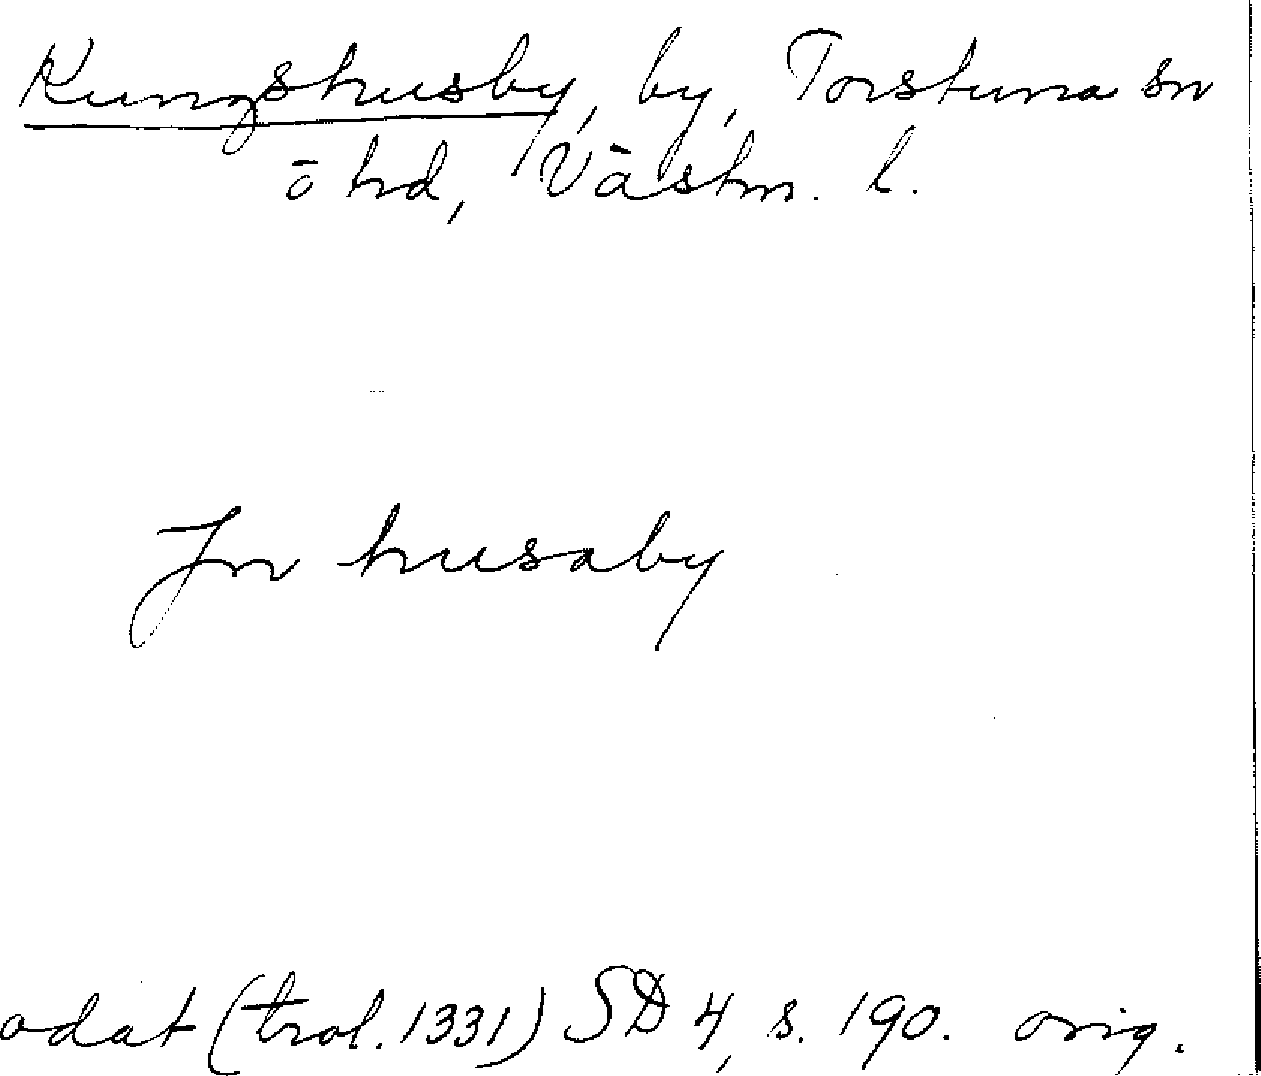 Kungshusby, by, Torstuna sn
ō hd, Västm. l.
Jn husaby
odat (trol. 1331) SD 4, s. 190. orig.